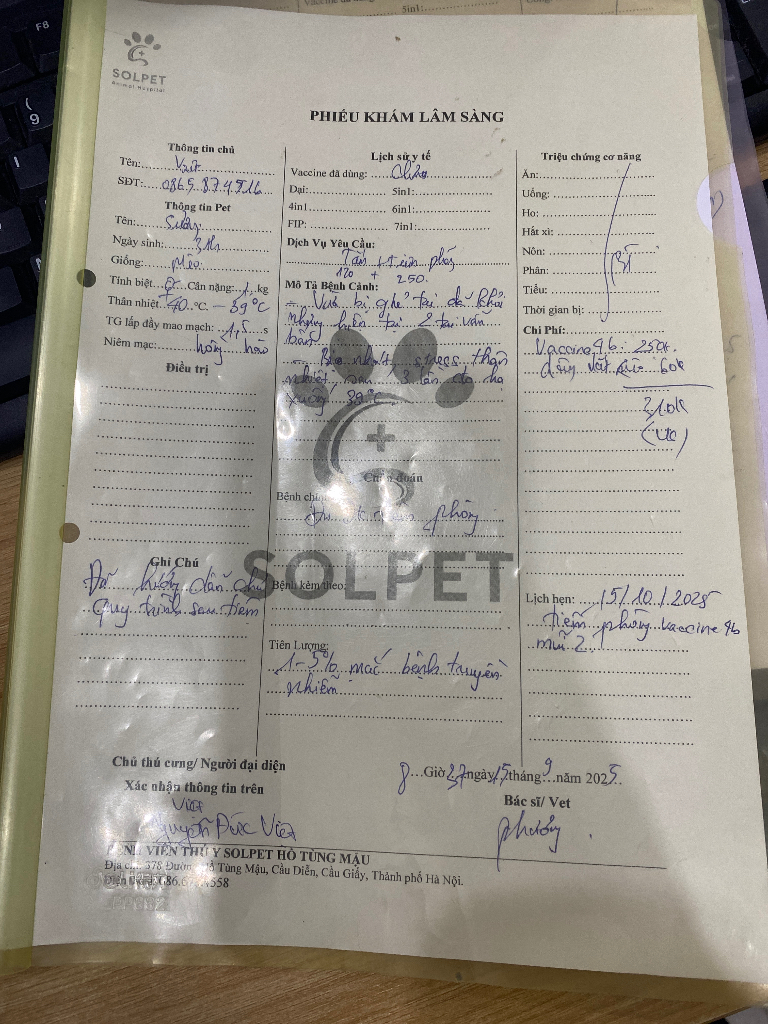 SOLPET
Animal Hospital
PHIẾU KHÁM LÂM SÀNG
Thông tin chủ
Tên: Việt
SĐT: 0865.874.516
Thông tin Pet
Tên:
Ngày sinh: 3th
Giống: Mèo
Tính biệt: Cân nặng: kg
Thân nhiệt 40 °C – 39°C
TG lấp đầy mao mạch: 1,5 s
Niêm mạc: hồng hào
Điều trị
Ghi Chú
Đã hướng dẫn chủ
quy trình sau tiêm
Lịch sử y tế
Vaccine đã dùng: Chưa
Dại: 5in1:
4in1 6in1:
FIP: 7in1:
Dịch Vụ Yêu Cầu:
Tắm + Tiêm phòng
120 + 250.
Mô Tả Bệnh Cảnh:
– Vừa bị ghẻ tai đã khỏi
nhưng hiện tại 2 tai vẫn
bẩn
– stress thân
nhiệt sau 3 lần đo hạ
xuống 39°C
Chẩn đoán
Bệnh chính
phòng
Bệnh kèm theo:
Tiên Lượng:
1-5% mắc bệnh truyền
nhiễm
Triệu chứng cơ năng
Ăn:
Uống:
Ho:
Hắt xì:
Nôn: BT
Phân:
Tiểu:
Thời gian bị:
Chi Phí:
Vaccine 4b: 250k
60k
310k
(ck)
Lịch hẹn: 15/10/2025
tiêm phòng vaccine 4b
mũi 2
Chủ thú cưng/ Người đại diện
Xác nhận thông tin trên
Việt
Nguyễn Đức Việt
8 Giờ 37 ngày 15 tháng 9 năm 2025
Bác sĩ/ Vet
Phương
BỆNH VIỆN THÚ Y SOLPET HỒ TÙNG MẬU
Địa chỉ: 378 Đường Hồ Tùng Mậu, Cầu Diễn, Cầu Giấy, Thành phố Hà Nội.
SOLPET